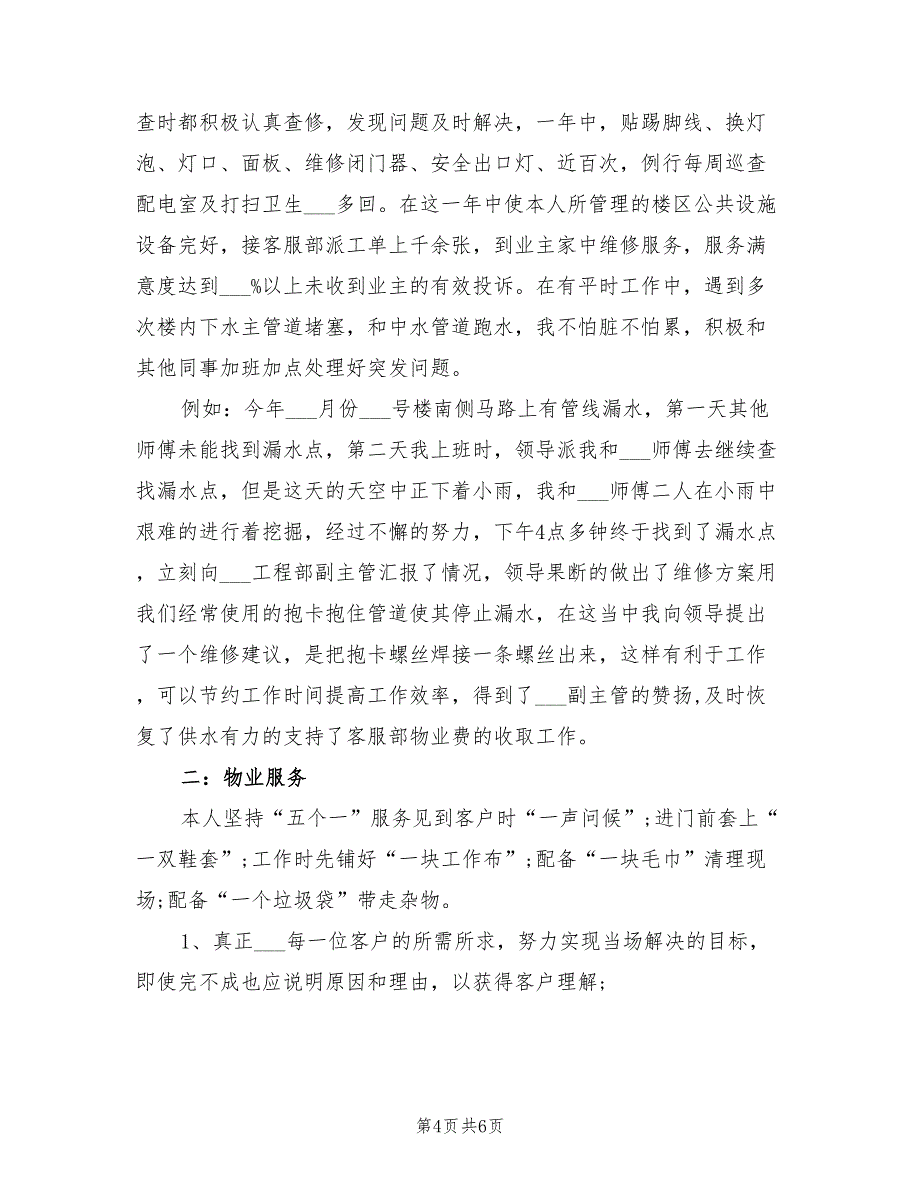 查时都积极认真查修，发现问题及时解决，一年中，贴踢脚线、换灯
泡、灯口、面板、维修闭门器、安全出口灯、近百次，例行每周巡查
配电室及打扫卫生___多回。在这一年中使本人所管理的楼区公共设施
设备完好，接客服部派工单上千余张，到业主家中维修服务，服务满
意度达到___%以上未收到业主的有效投诉。在有平时工作中，遇到多
次楼内下水主管道堵塞，和中水管道跑水，我不怕脏不怕累，积极和
其他同事加班加点处理好突发问题。
例如：今年___月份___号楼南侧马路上有管线漏水，第一天其他
师傅未能找到漏水点，第二天我上班时，领导派我和___师傅去继续查
找漏水点，但是这天的天空中正下着小雨，我和___师傅二人在小雨中
艰难的进行着挖掘，经过不懈的努力，下午4点多钟终于找到了漏水点
，立刻向___工程部副主管汇报了情况，领导果断的做出了维修方案用
我们经常使用的抱卡抱住管道使其停止漏水，在这当中我向领导提出
了一个维修建议，是把抱卡螺丝焊接一条螺丝出来，这样有利于工作
，可以节约工作时间提高工作效率，得到了___副主管的赞扬,及时恢
复了供水有力的支持了客服部物业费的收取工作。
二：物业服务
本人坚持“五个一”服务见到客户时“一声问候”;进门前套上“
一双鞋套”;工作时先铺好“一块工作布”;配备“一块毛巾”清理现
场;配备“一个垃圾袋”带走杂物。
1、真正___每一位客户的所需所求，努力实现当场解决的目标，
即使完不成也应说明原因和理由，以获得客户理解;
第4页共6页